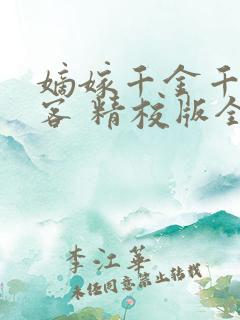 嫡嫁千金千
客 精校版全
李江華
未经同意禁止转载